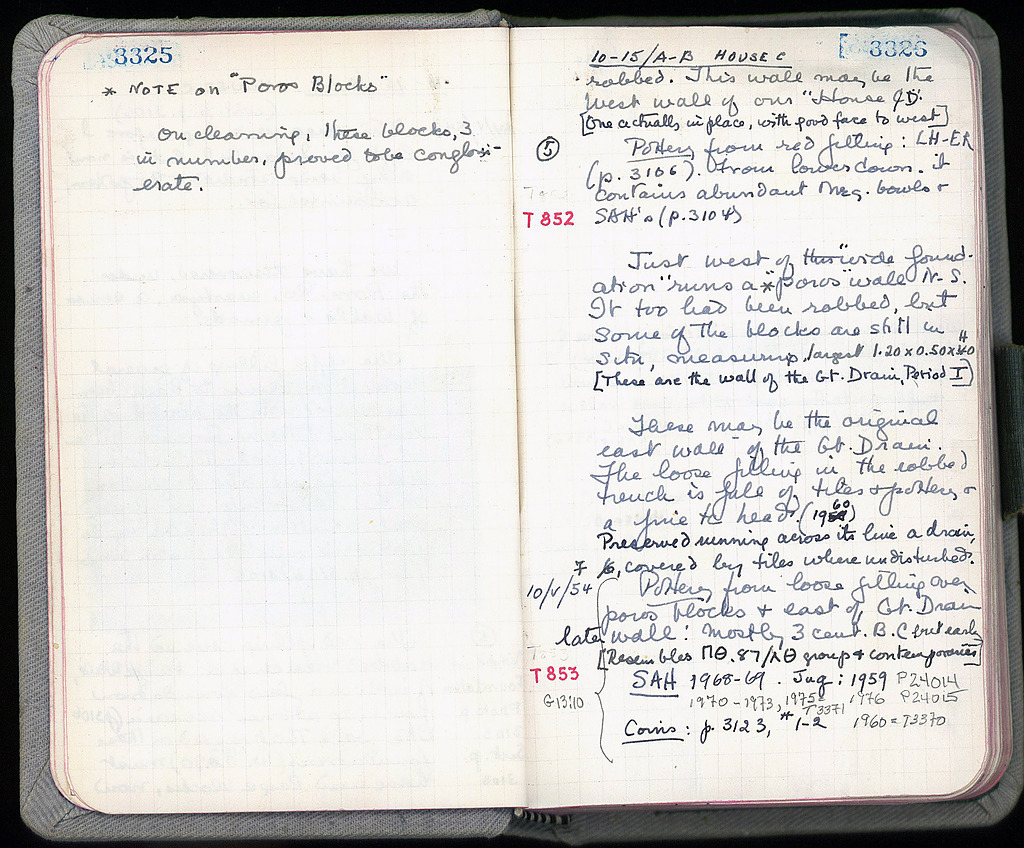 3325
* NOTE on "Poros Blocks"
On cleaning, these blocks, 3
in number, proved to be conglom-
erate.
3326
10-15/A-B HOUSE C
robbed. This wall may be the
west wall of our "House D".
[One actually in place, with good face to west]
⑤ Pottery from red filling: LH-ER
(p. 3106). From lower down. it
contains abundant Meg. bowls +
T 852 SAH's (p. 3104)
Just west of this "wide found-
ation" runs a * "poros" wall N-S.
It too had been robbed, but
some of the blocks are still in
situ, measuring, largest 1.20 x 0.50 x
[These are the wall of the Gt. Drain, Period I]
These may be the original
east wall of the Gt. Drain.
The loose filling in the robbed
trench is full of tiles + pottery +
a fine tc head. (1960)
Preserved running across its line a drain,
covered by tiles where undisturbed.
10/V/54 Pottery from loose filling over
poros blocks + east of Gt. Drain
late wall: Mostly 3 cent. B.C but early
[Resembles ΠΘ.87/ΛΘ group + contemporaries]
T 853 SAH 1968-69. Jug: 1959 P24014
G13:10 1970-1973, 1975= T3371 1976 P24015
Coins: p. 3123, #1-2 1960=T3370